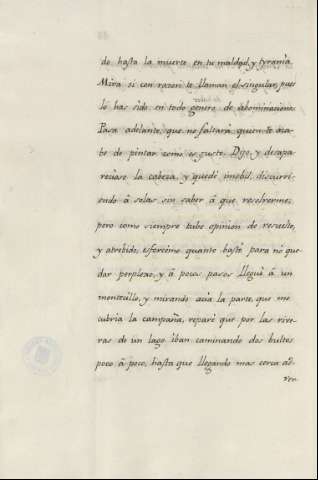 do hasta la muerte en tu maldad, y tyrania.
Mira si con razon te llaman el singular, pues
lo has sido en todo genero de abominacions.
Pasa adelante, que no faltará quien te aca-
be de pintar como es gusto. Dijo, y desapa-
reciose la cabeza, y quedé imobil, discurri-
endo á solas sin saber á que resolverme;
pero como siempre tube opinion de resuelto,
y atrebido, esforcéme quanto bastó para no que-
dar perplexo, y á pocos pasos llegué á un
montecillo, y mirando acia la parte, que me
cubria la campaña, reparé que por las rive-
ras de un lago iban caminando dos bultos
poco á poco, hasta que llegando mas cerca ad-
ver-